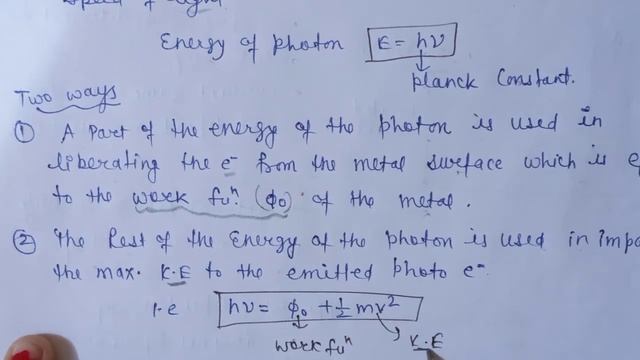 Speed of light
Energy of photon E = hν
Planck Constant.
Two ways
① A part of the energy of the photon is used in
liberating the e⁻ from the metal surface which is
to the work fuⁿ. (ϕ₀) of the metal.
② The Rest of the Energy of the photon is used in
the max. K.E to the emitted photo e⁻.
i.e hν = ϕ₀ + ½ mv²
work fuⁿ K.E